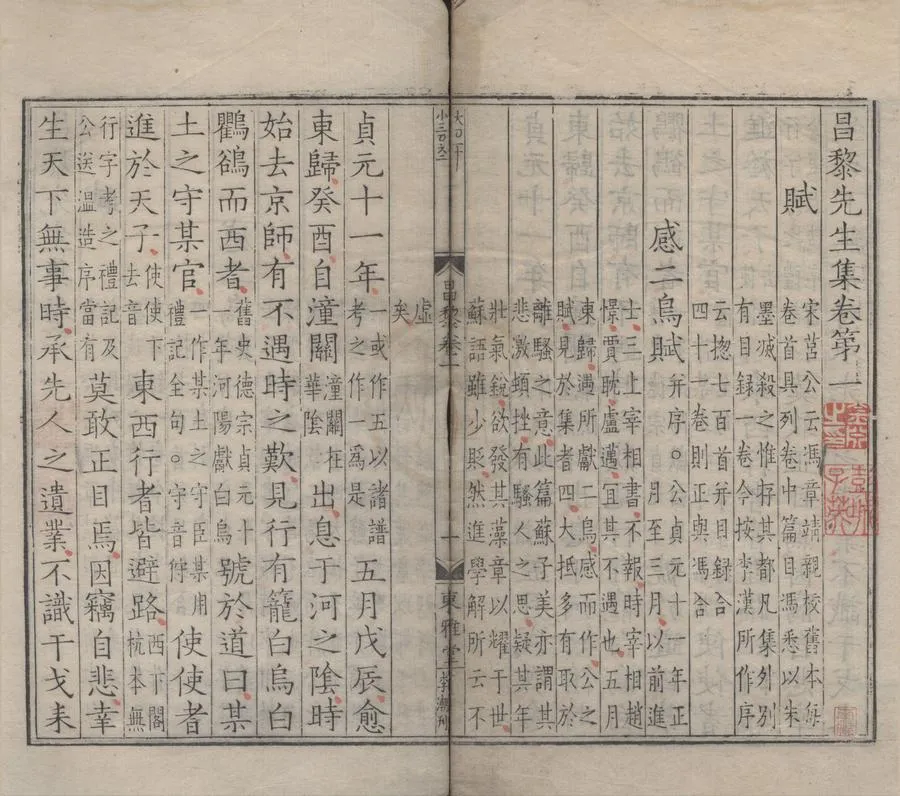 昌黎先生集卷第一
賦
宋莒公云馮章靖親校舊本每
卷首具列卷中篇目馮悉以朱
墨滅殺之惟存其都凡集外別
有目録一卷今按李漢所作序
云揔七百首并目録合
四十一卷則正與馮合
感二鳥賦
并序。公貞元十一年正
月至三月以前進
士三上宰相書不報時宰相趙
憬賈耽盧邁宜其不遇也五月
東歸遇所獻二鳥感而作公之
賦見於集者四大抵多有取於
離騷之意此篇蘇子美亦謂其
悲激頓挫有騷人之思疑其年
壯氣銳欲發其藻章以耀于世
蘇語雖少貶然進學解所云不
虛
矣
昌黎卷一
一
東雅堂
李潮刋
貞元十一年
一或作五以諸譜
考之作一爲是
五月戊辰愈
東歸癸酉自潼關
潼關在
華陰
出息于河之陰時
始去京師有不遇時之歎見行有籠白烏白
鸜鵒而西者
舊史德宗貞元十
一年河陽獻白烏
號於道曰某
土之守某官
一作某土之守臣某用
禮記全句。守音狩
使使者
進於天子
使使下
去音
東西行者皆避路
西下閣
杭本無
行字考之禮記及
公送温造序當有
莫敢正目焉因竊自悲幸
生天下無事時承先人之遺業不識干戈耒